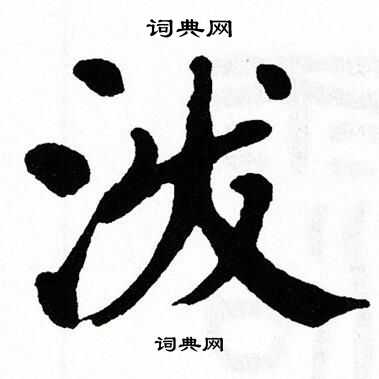 词典网
沷
词典网